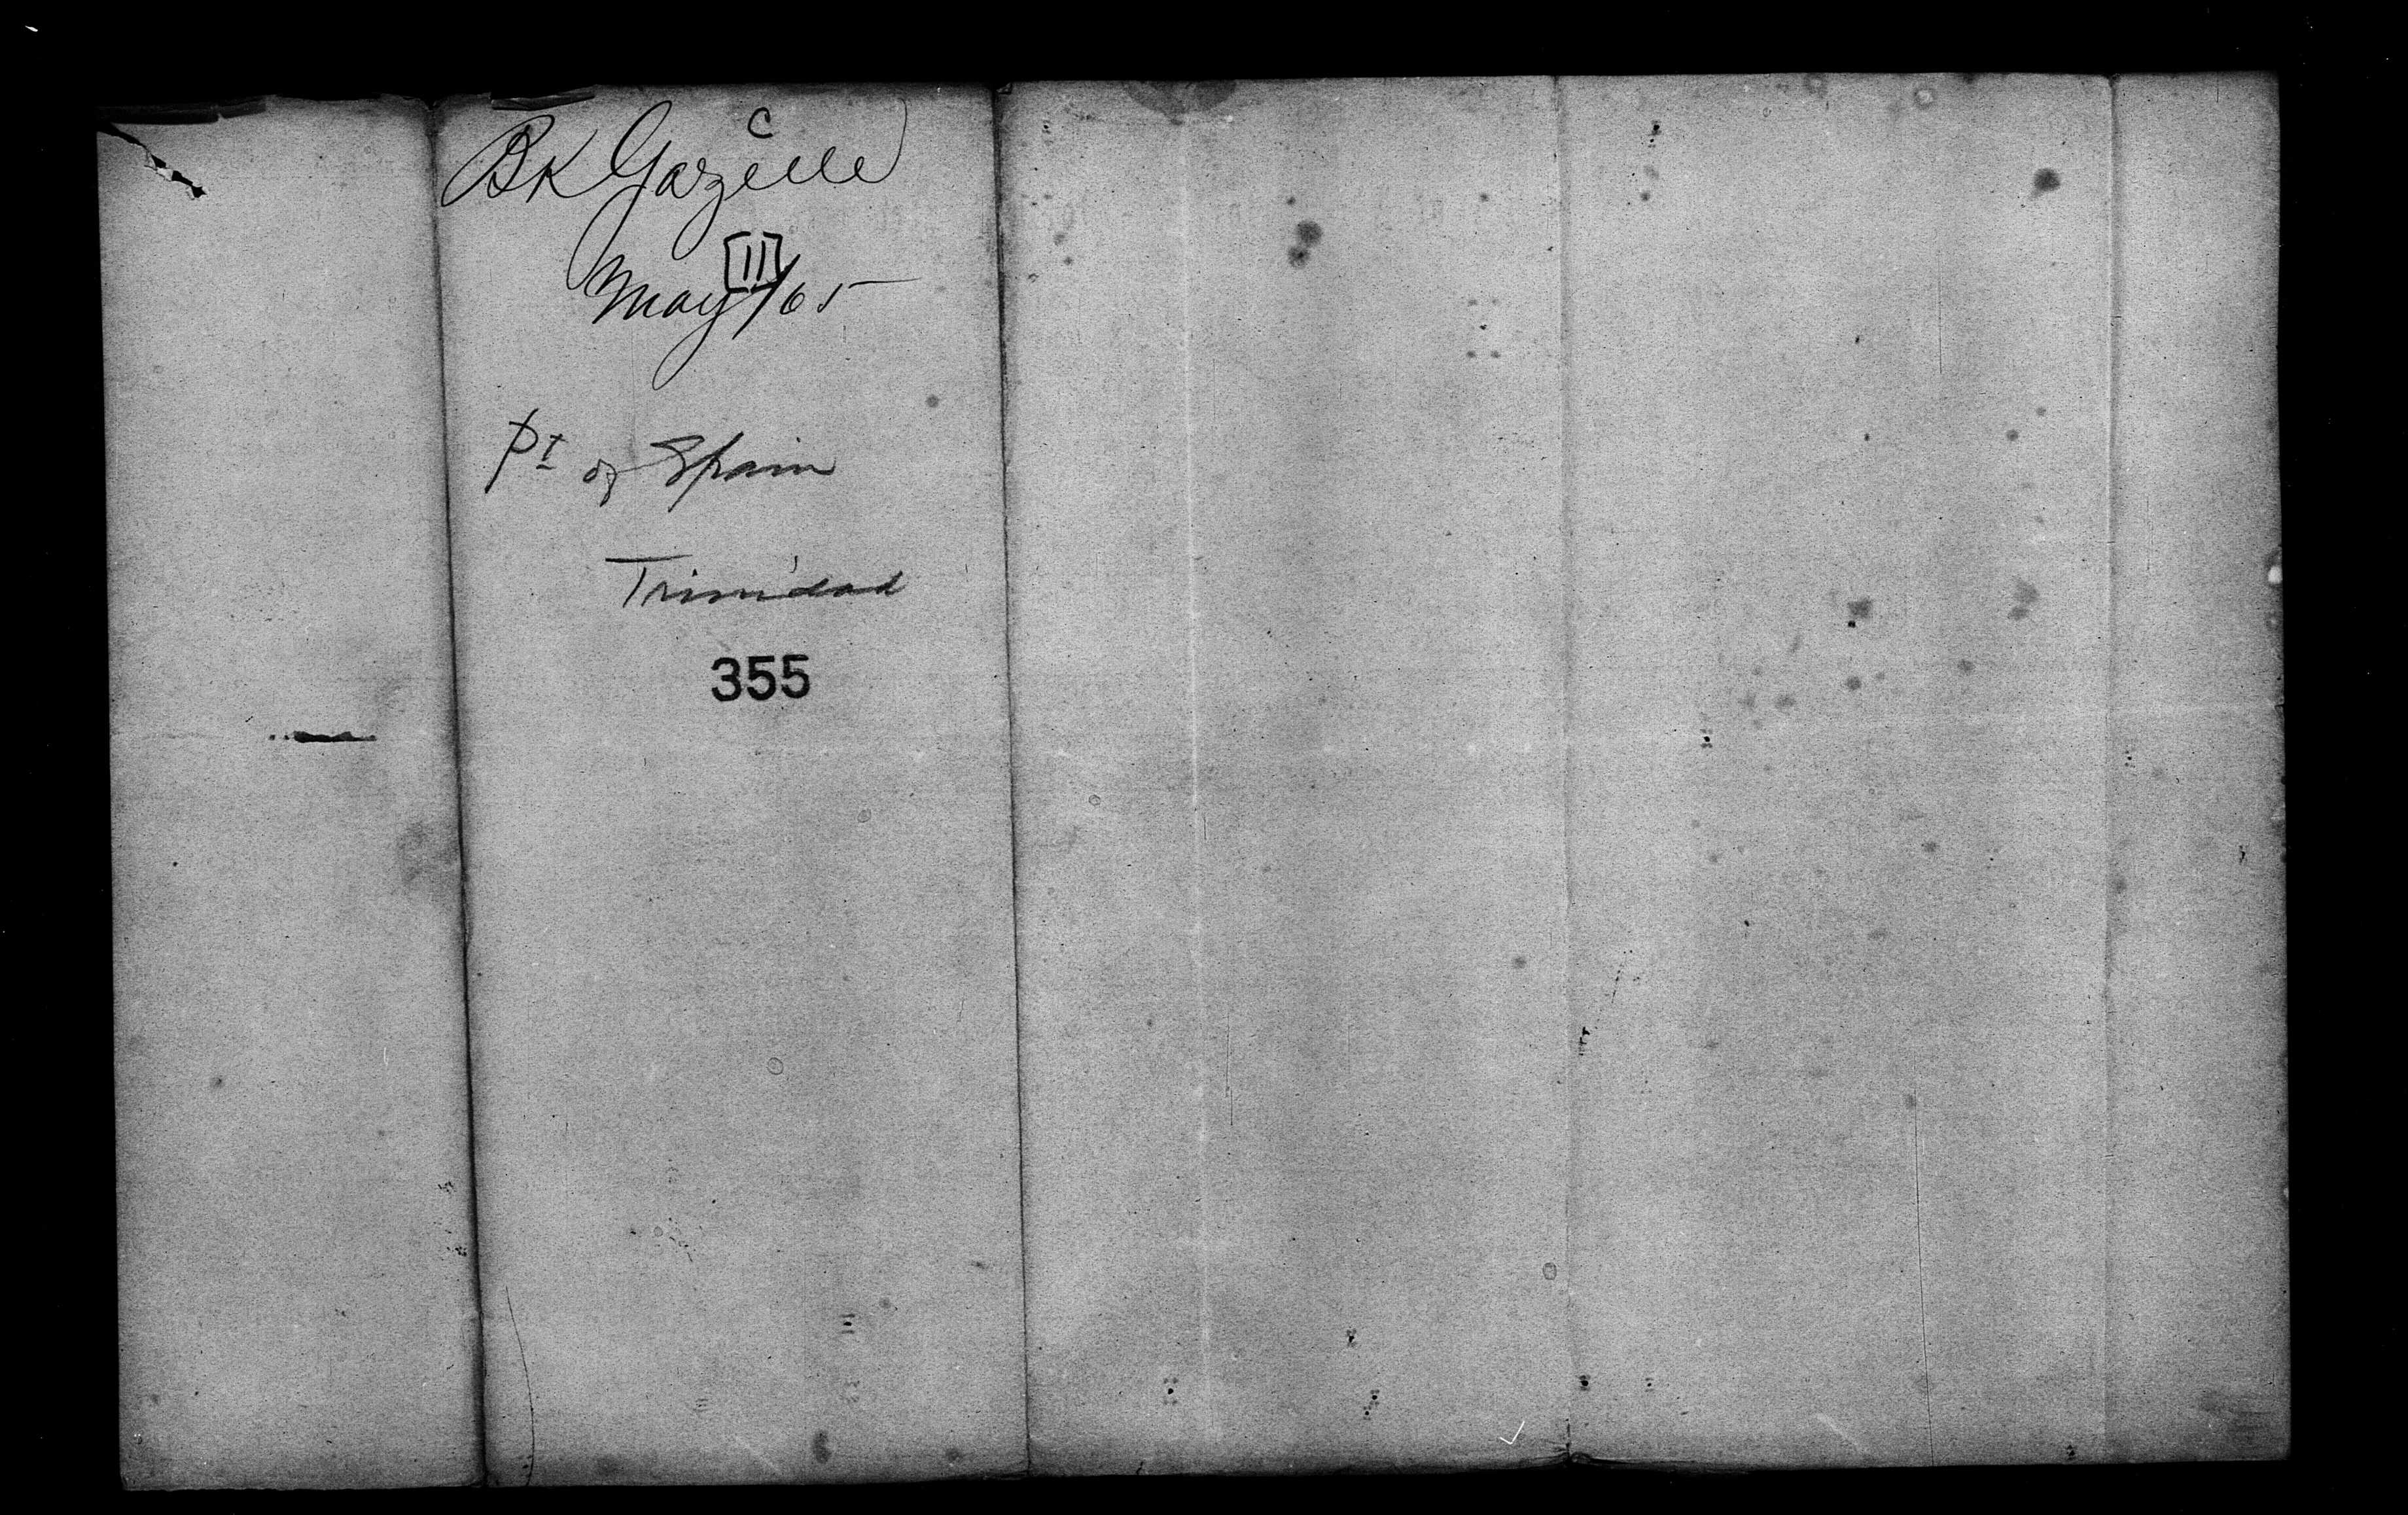 C
Bk Gazelle
[11]
May /65
Pt of Spain
Trinidad
355